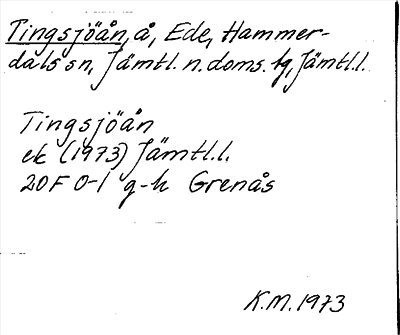 Tingsjöån, å, Ede, Hammer-
dals sn, Jämtl. n. doms. tg, Jämtl.l.
Tingsjöån
ek (1973) Jämtl.l.
20F 0-1 g-h Grenås
K.M. 1973